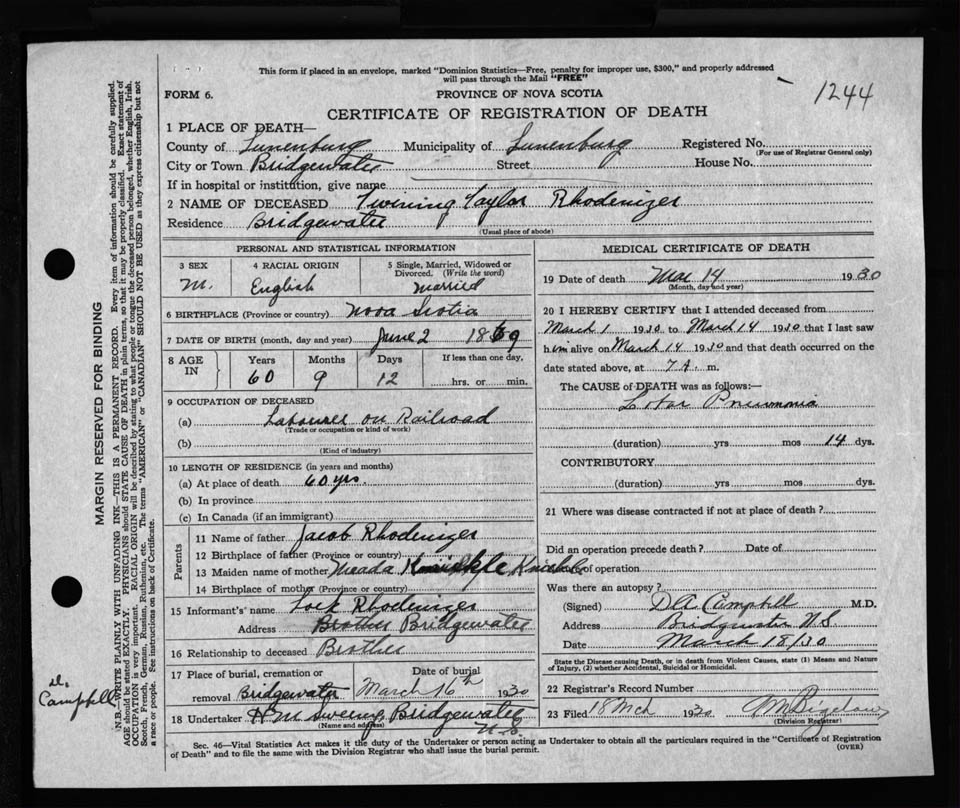 This form if placed in an envelope, marked "Dominion Statistics—Free, penalty for improper use, $300," and properly addressed
will pass through the Mail "FREE"
FORM 6.
PROVINCE OF NOVA SCOTIA
1244
CERTIFICATE OF REGISTRATION OF DEATH
1 PLACE OF DEATH—
County of Lunenburg Municipality of Lunenburg Registered No.
(For use of Registrar General only)
City or Town Bridgewater Street House No.
If in hospital or institution, give name
2 NAME OF DECEASED Twining Taylor Rhodenizer
Residence Bridgewater
(Usual place of abode)
PERSONAL AND STATISTICAL INFORMATION
3 SEX 4 RACIAL ORIGIN 5 Single, Married, Widowed or
Divorced. (Write the word)
M. English married
6 BIRTHPLACE (Province or country) Nova Scotia
7 DATE OF BIRTH (month, day and year) June 2 1869
8 AGE IN Years Months Days If less than one day,
60 9 12 hrs. or min.
9 OCCUPATION OF DECEASED
(a) Labourer on Railroad
(Trade or occupation or kind of work)
(b)
(Kind of industry)
10 LENGTH OF RESIDENCE (in years and months)
(a) At place of death 60 yrs.
(b) In province
(c) In Canada (if an immigrant)
Parents
11 Name of father Jacob Rhodenizer
12 Birthplace of father (Province or country)
13 Maiden name of mother Meada Knickle
14 Birthplace of mother (Province or country)
15 Informant's name Lock Rhodenizer
Address Brother Bridgewater
16 Relationship to deceased Brother
17 Place of burial, cremation or Date of burial
removal Bridgewater March 16th 1930
18 Undertaker Bridgewater
(Name and address) N.S.
MEDICAL CERTIFICATE OF DEATH
19 Date of death Mar 14 1930
(Month, day and year)
20 I HEREBY CERTIFY that I attended deceased from
March 1 1930 to March 14 1930 that I last saw
him alive on March 14 1930 and that death occurred on the
date stated above, at 7 A. m.
The CAUSE of DEATH was as follows:—
Lobar Pneumonia
(duration) yrs mos 14 dys.
CONTRIBUTORY
(duration) yrs mos dys.
21 Where was disease contracted if not at place of death?
Did an operation precede death? Date of
of operation
Was there an autopsy?
(Signed) D A Campbell M.D.
Address Bridgewater N.S.
Date March 18/30
State the Disease causing Death, or in death from Violent Causes, state (1) Means and Nature
of Injury, (2) whether Accidental, Suicidal or Homicidal.
22 Registrar's Record Number
23 Filed 18 Mch 1930
(Division Registrar)
Sec. 46—Vital Statistics Act makes it the duty of the Undertaker or person acting as Undertaker to obtain all the particulars required in the "Certificate of Registration
of Death" and to file the same with the Division Registrar who shall issue the burial permit. (OVER)
MARGIN RESERVED FOR BINDING
N.B.—WRITE PLAINLY WITH UNFADING INK—THIS IS A PERMANENT RECORD. Every item of information should be carefully supplied.
AGE should be stated EXACTLY. PHYSICIANS should STATE CAUSE OF DEATH in plain terms, so that it may be properly classified. Exact statement of
OCCUPATION is very important. RACIAL ORIGIN will be described by stating to what people or tongue the deceased person belonged, whether English, Irish,
Scotch, French, German, Russian, Ruthenian, etc. The terms "AMERICAN" or "CANADIAN" SHOULD NOT BE USED as they express citizenship but not
a race or people. See instructions on back of Certificate.
Campbell